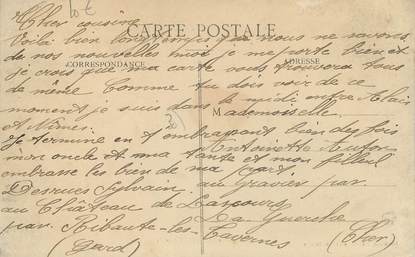 10€
Cher cousine
CARTE POSTALE
Voilà bien longtemps que nous ne savons
de nos nouvelles moi je me porte bien et
CORRESPONDANCE
ADRESSE
je crois que ma carte vous trouvera tous
de même Comme tu dois voir de ce
moment je suis dans le midi entre Alais
et Nîmes.
Mademoiselle
Je termine en t'embrassant bien des fois
mon oncle et ma tante et mon filleul
Antoinette
embrasse les bien de ma part
Desrues Sylvain
au Gravier par
au Château de Lascours
La Guerche
par Ribaute-les-Tavernes
(Gard)
(Cher)